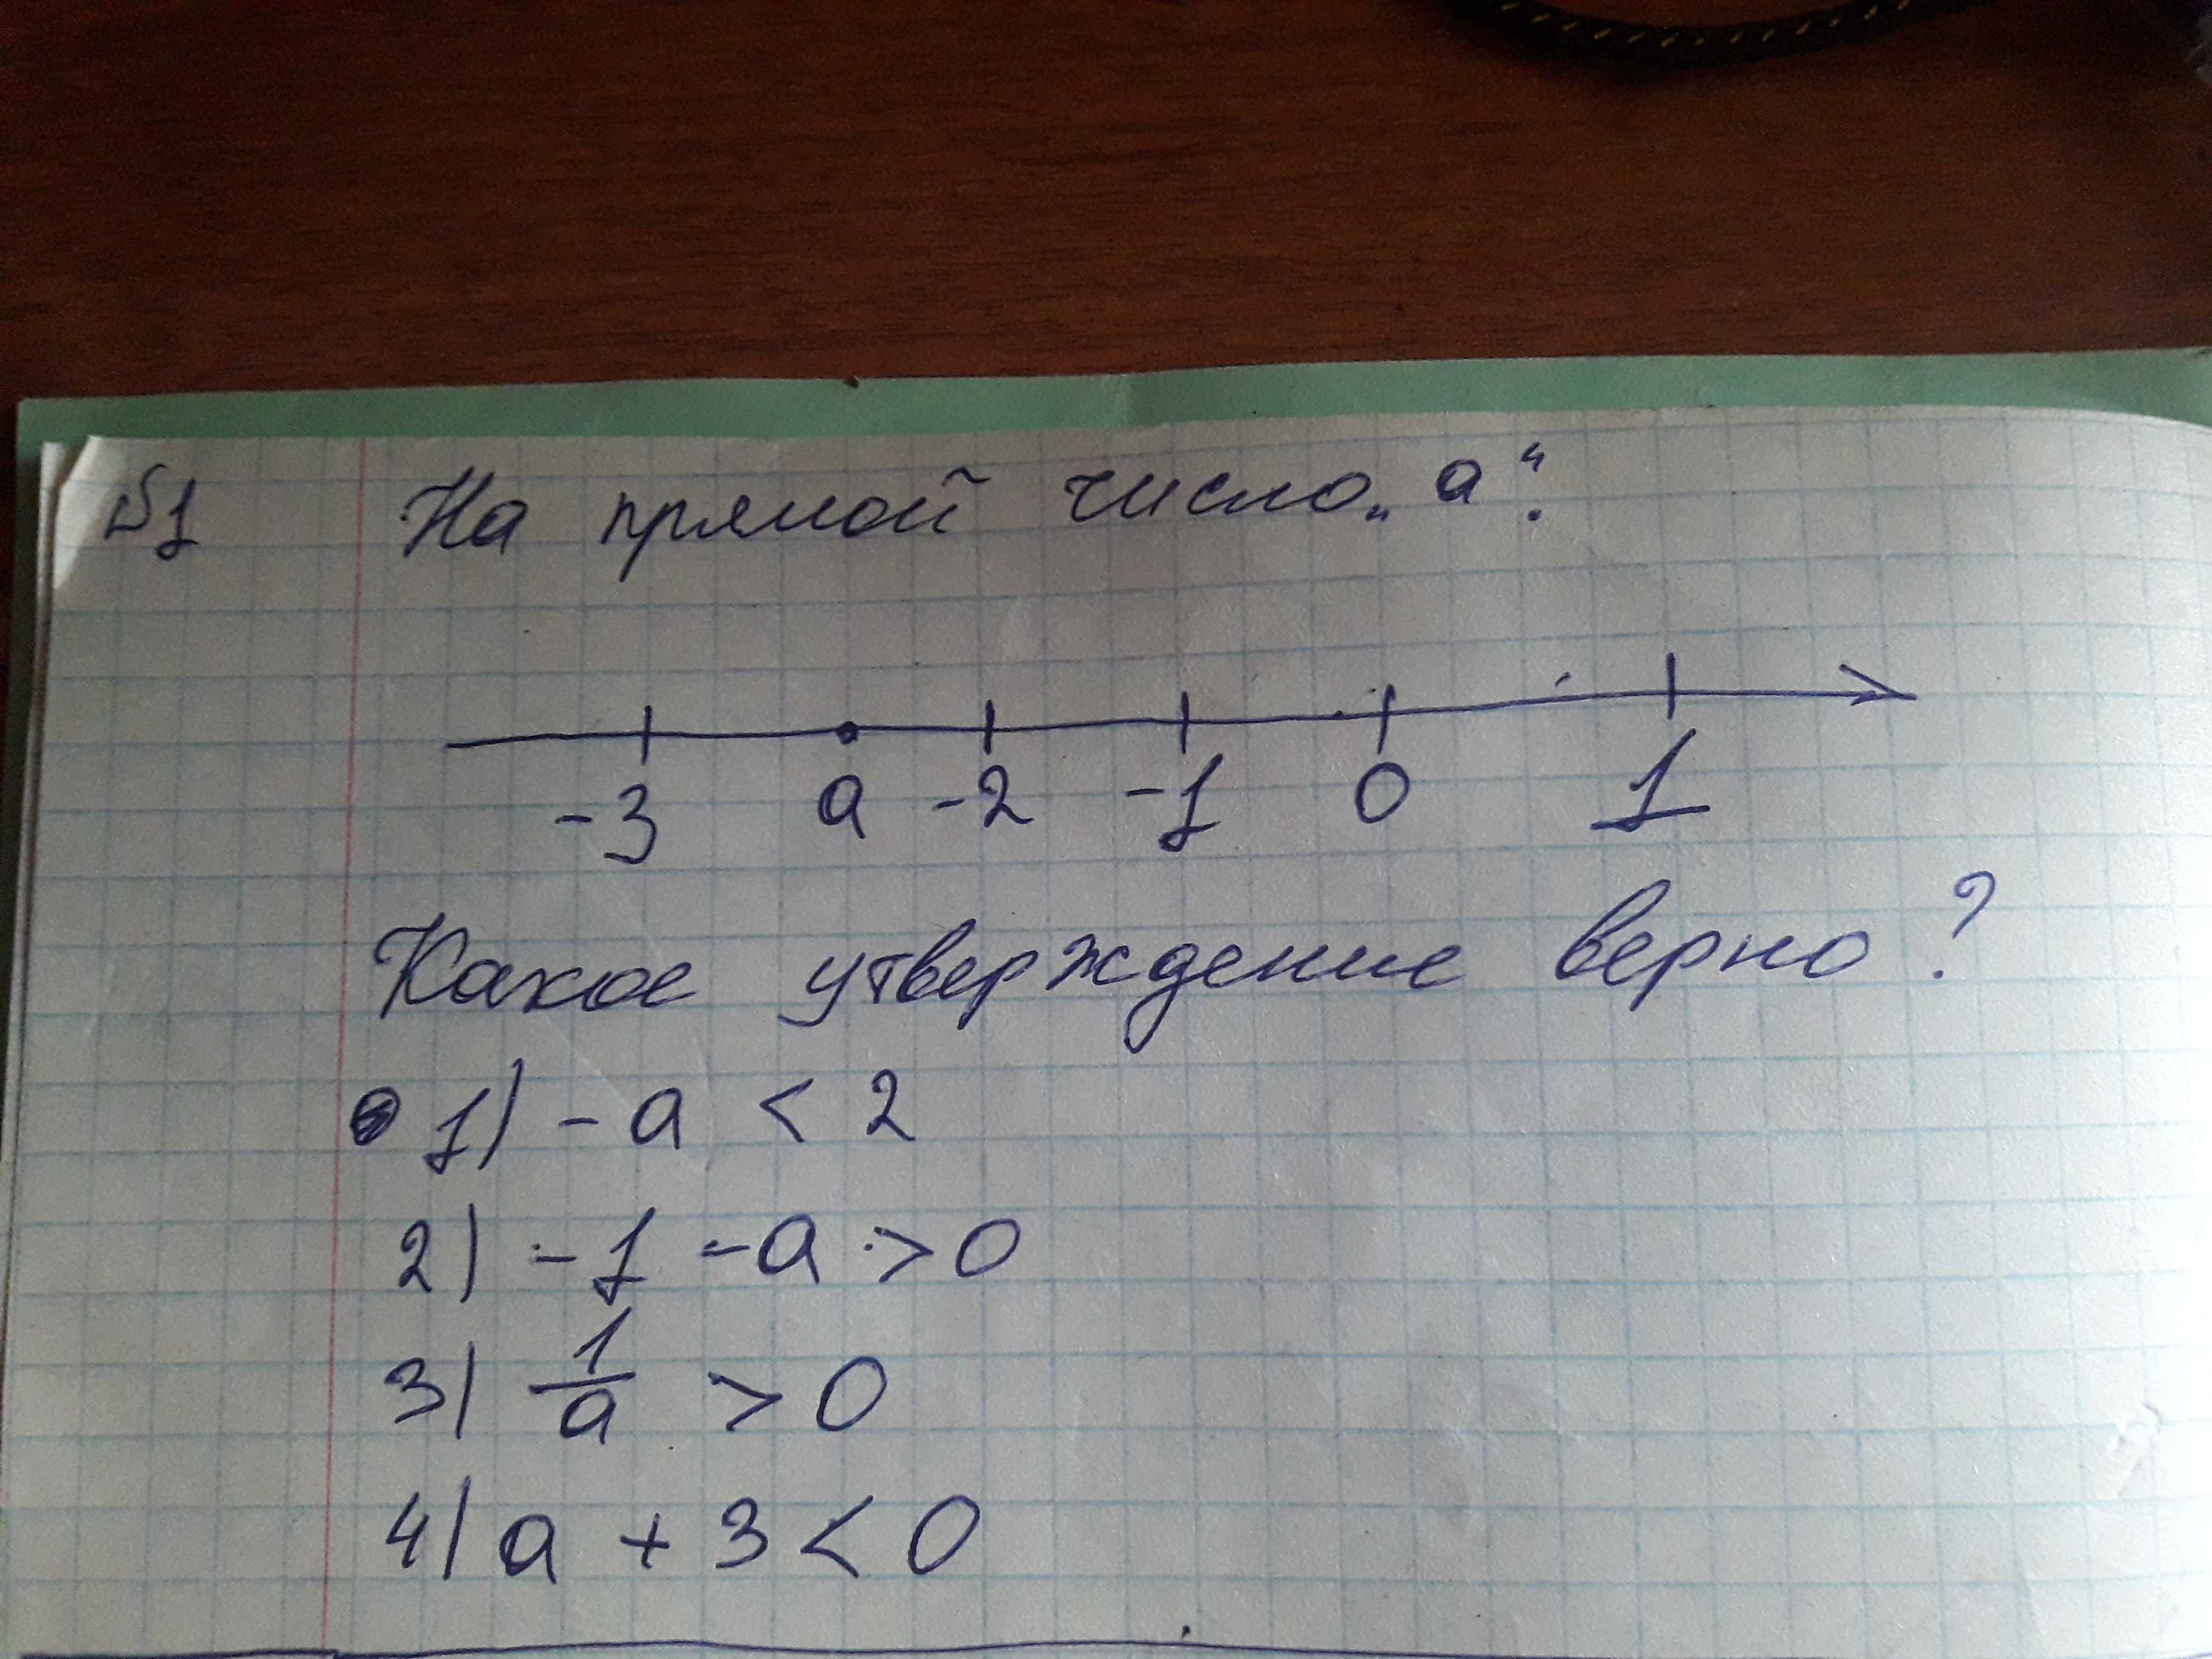 №1 На прямой число „а“:
-3 а -2 -1 0 1
Какое утверждение верно?
1) -а < 2
2) -1 -а > 0
3) 1/а > 0
4) а + 3 < 0